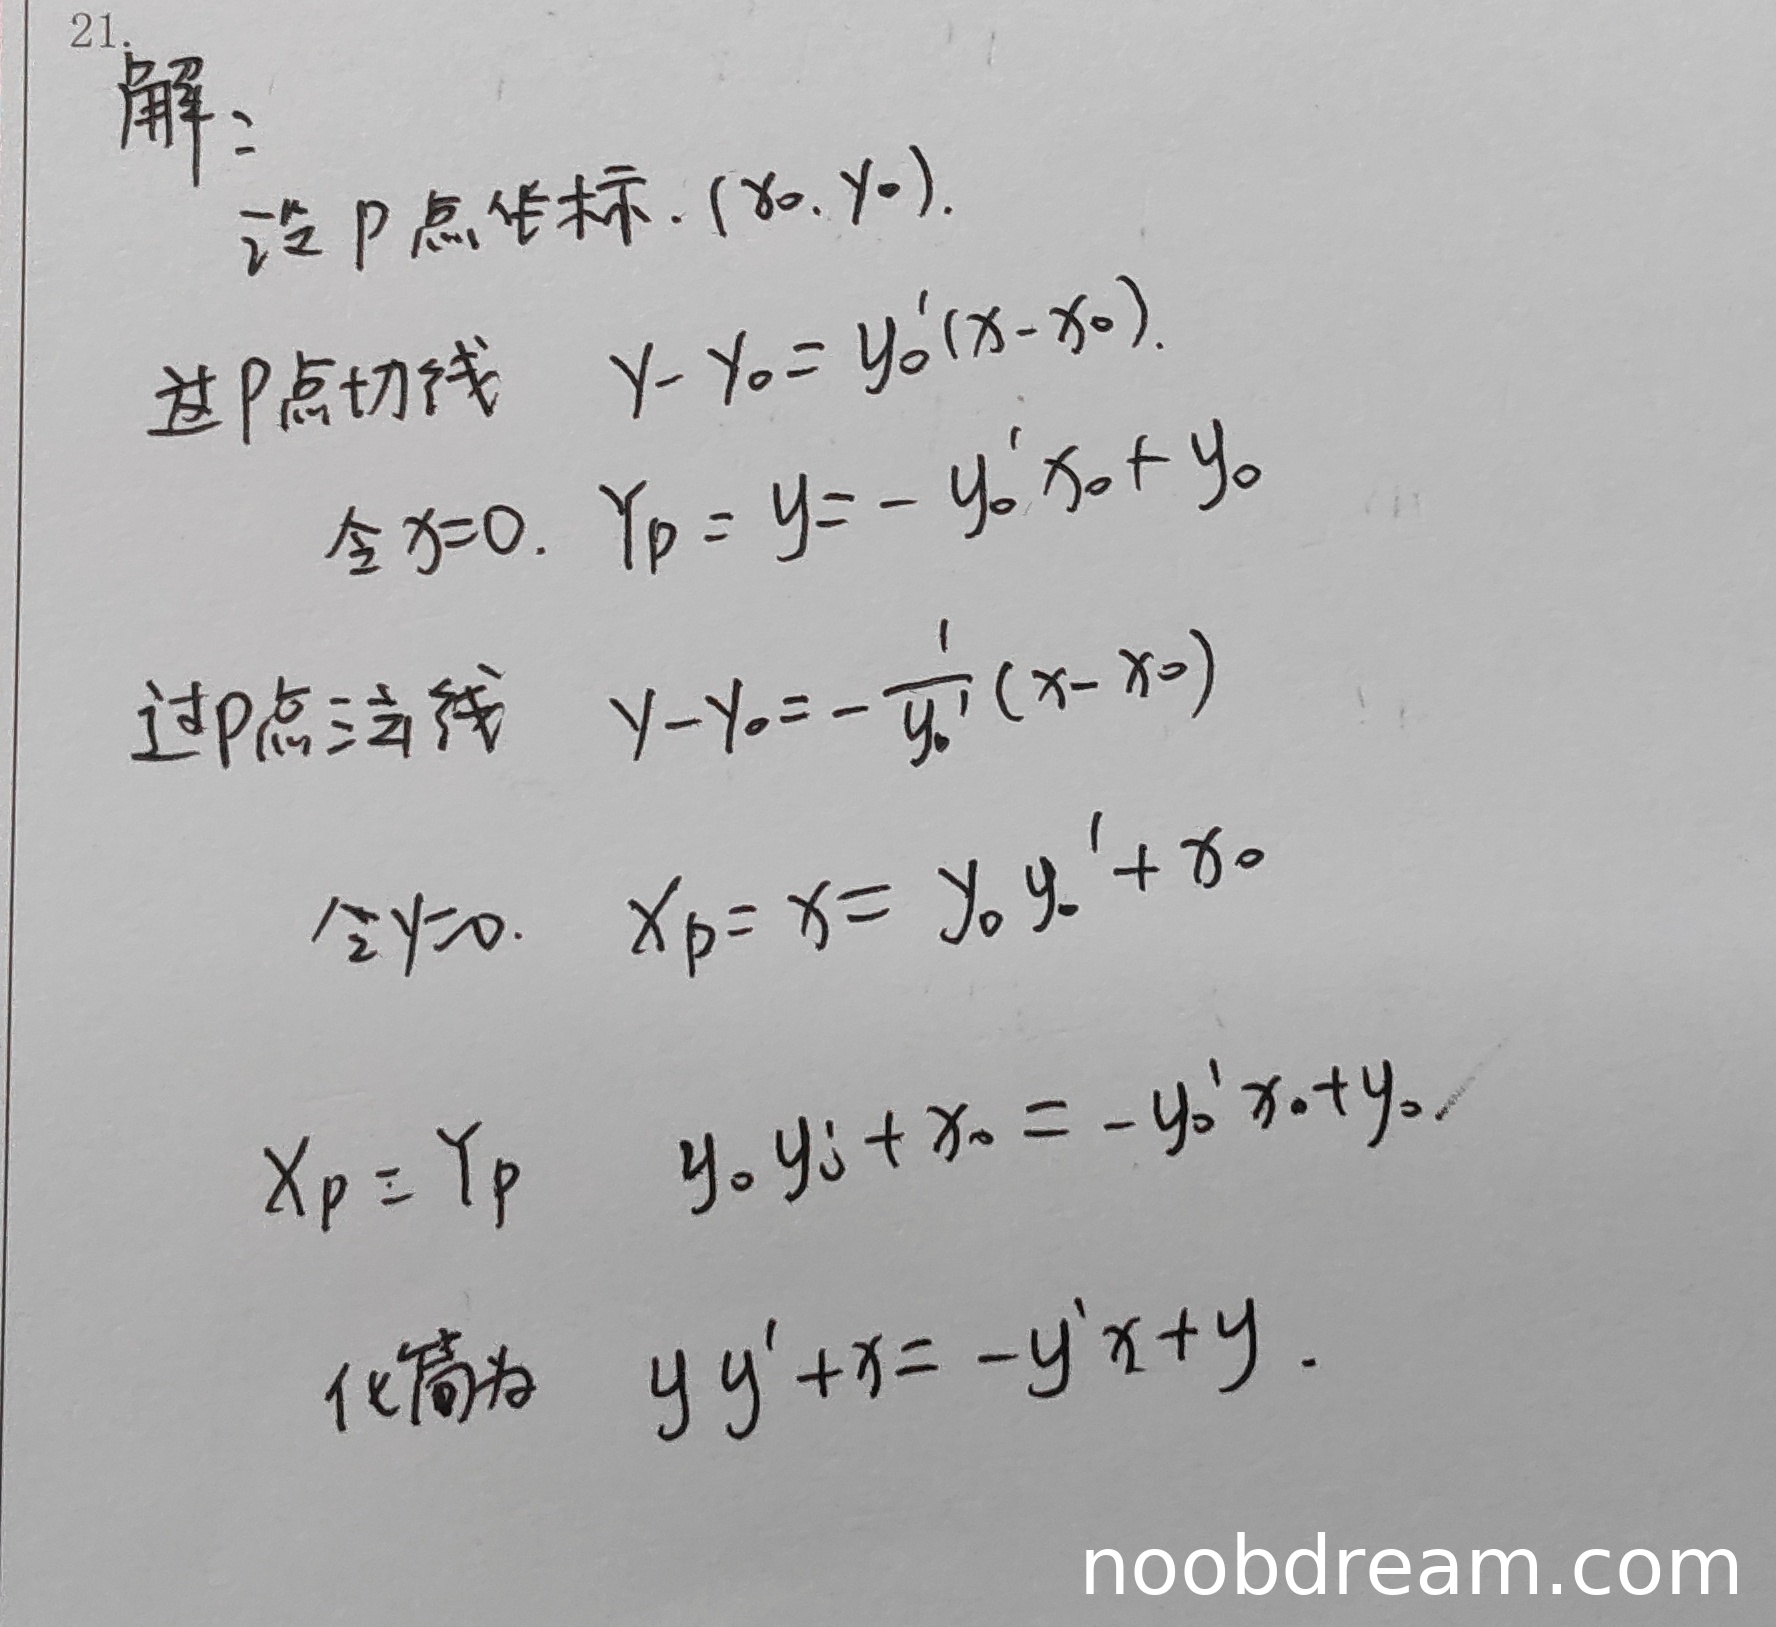 21.
解:
设P点坐标.(x₀.y₀).
过P点切线 y-y₀=y₀'(x-x₀).
令x=0. Yₚ=y=-y₀'x₀+y₀
过P点法线 y-y₀=-1/y₀'(x-x₀)
令y=0. Xₚ=x=y₀y₀'+x₀
Xₚ=Yₚ y₀y₀'+x₀=-y₀'x₀+y₀.
化简为 yy'+x=-y'x+y.
noobdream.com